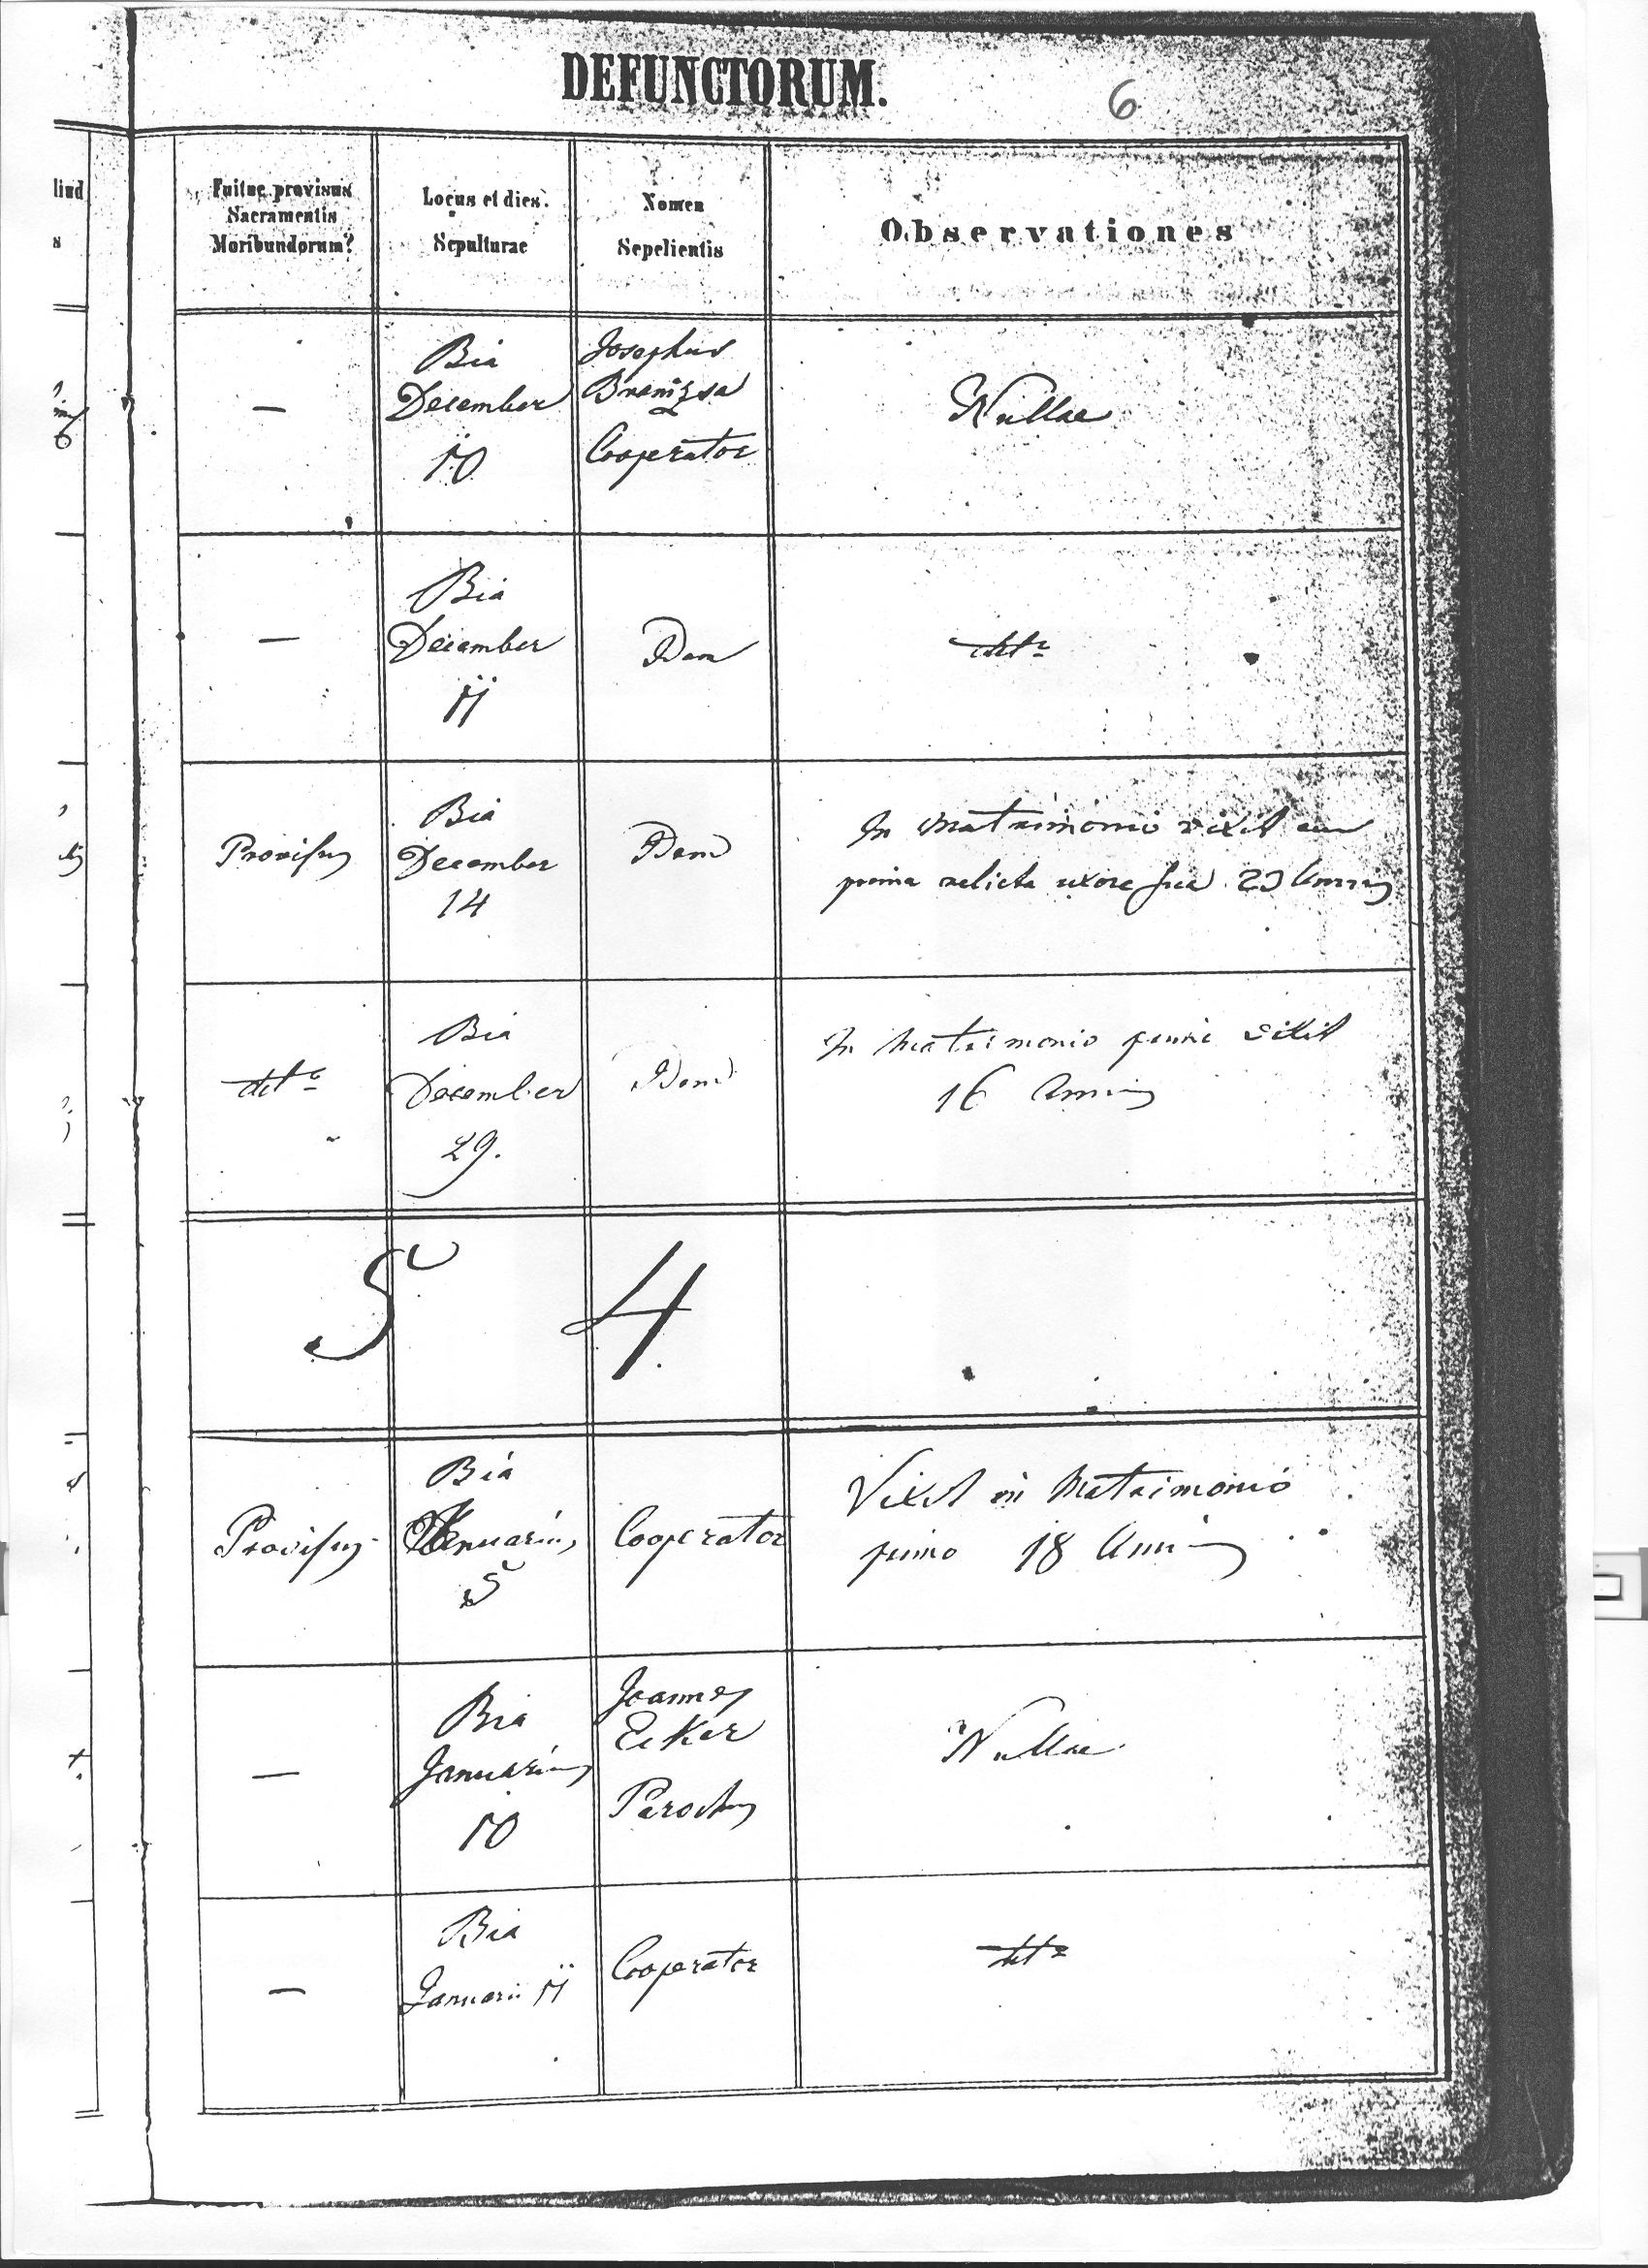 DEFUNCTORUM.
6
liud
s
Fuitne provisus
Sacramentis
Moribundorum?
Locus et dies
Sepulturae
Nomen
Sepelientis
Observationes
—
Bia
December
10
Josephus
Cooperator
Nullae
—
Bia
December
11
Idem
dtto
Provisus
Bia
December
14
Idem
In Matrimonio vixit cum
prima relicta uxore sua 23 Annis
dtto
Bia
December
29.
Idem
In Matrimonio primi vixit
16 Annis
5 4
Provisus
Bia
Januarius
5
Cooperator
Vixit in Matrimonio
primo 18 Annis
—
Bia
Januarius
10
Joannes
Ecker
Parochus
Nullae
—
Bia
Januarii 11
Cooperator
dtto